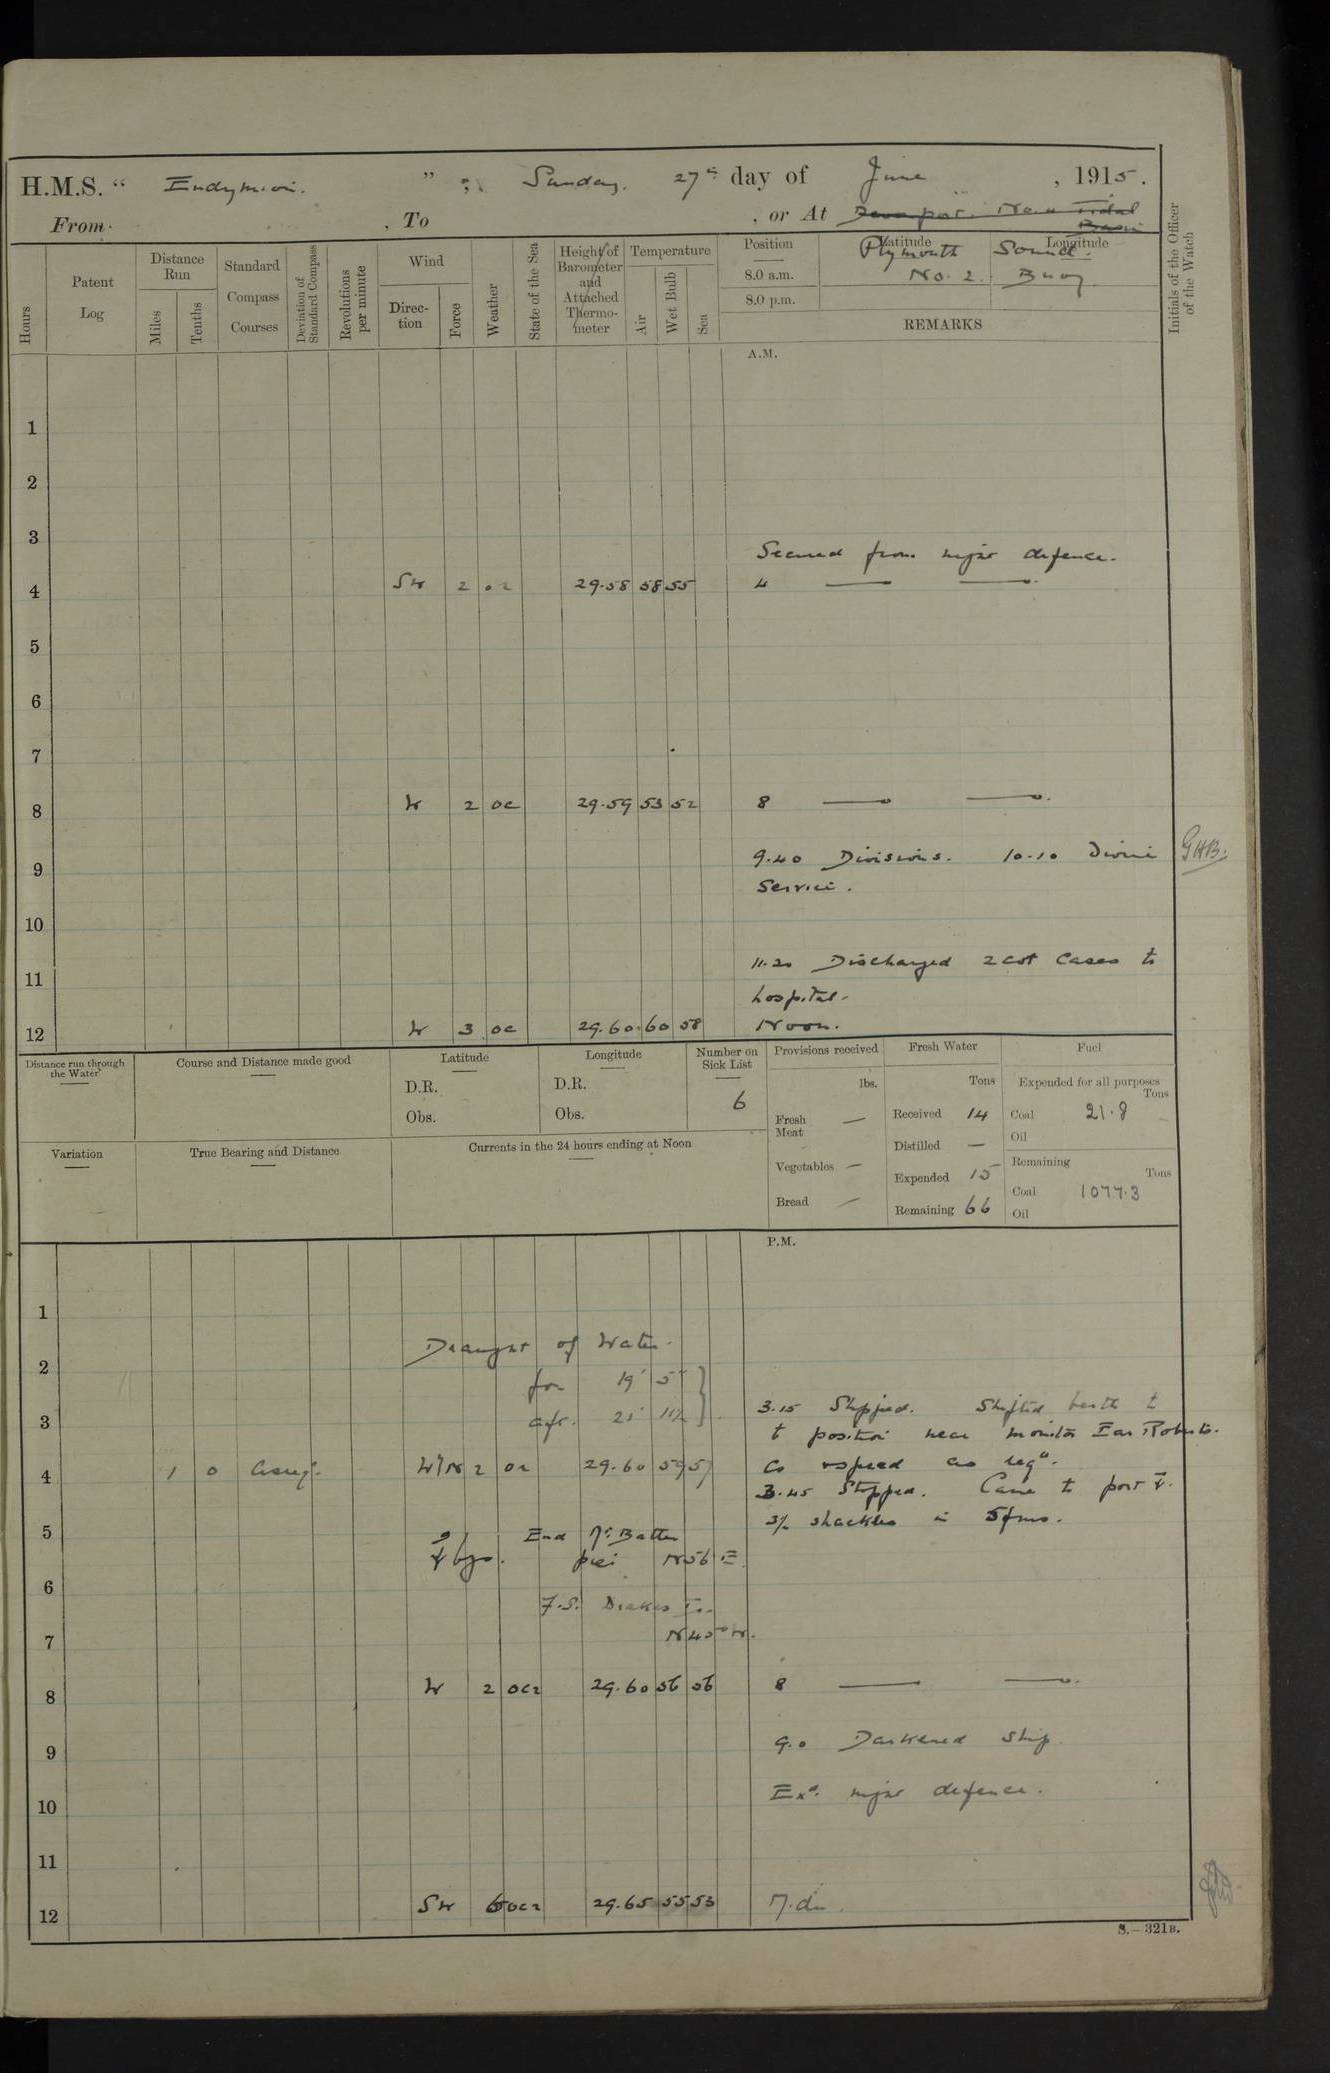 H.M.S. " Endymion. " ; Sunday. 27th day of June , 1915.
From , To , or At Devonport. New Tidal Basin
Plymouth Sound.
No. 2. Buoy
Hours
Patent Log
Distance Run
Miles
Tenths
Standard Compass Courses
Deviation of Standard Compass
Revolutions per minute
Wind
Direction
Force
Weather
State of the Sea
Height of Barometer and Attached Thermometer
Temperature
Air
Wet Bulb
Sea
Position Latitude Longitude
8.0 a.m.
8.0 p.m.
REMARKS
Initials of the Officer of the Watch
A.M.
1
2
3
Secured from night defence.
4 SW 2 29.58 58 55 4 — —
5
6
7
8 W 2 oc 29.59 53 52 8 — —
9.40 Divisions. 10.10 Divine GHB.
9
Service.
10
11.20 Discharged 2 cot cases to
11
hospital.
12 W 3 oc 29.60 60 58 Noon.
Distance run through the Water
Course and Distance made good
Latitude
D.R.
Obs.
Longitude
D.R.
Obs.
Number on Sick List
6
Provisions received
lbs.
Fresh Meat —
Vegetables —
Bread —
Fresh Water
Tons
Received 14
Distilled —
Expended 15
Remaining 66
Fuel
Expended for all purposes
Tons
Coal 21.8
Oil
Remaining
Tons
Coal 1077.3
Oil
Variation
True Bearing and Distance
Currents in the 24 hours ending at Noon
P.M.
1
Draught of Water.
2
for 19' 5"
3 aft. 21' 11½
3.15 Slipped. Shifted berth t
t position near monitor Earl Roberts.
4 1 0 W/N 2 29.60 59 57 Co & speed as reqd.
3.45 Stopped. Came to port
5 3½ shackles in 5 fms.
End Mt Batten
pier N56 E
6
F.S. Drakes Is.
7 N40°W.
8 W 2 ocr 29.60 56 56 8 — —
9 9.0 Darkened ship
10 Exd. night defence.
11
12 SW ocr 29.65 55 53 Mdn.
S.—321B.